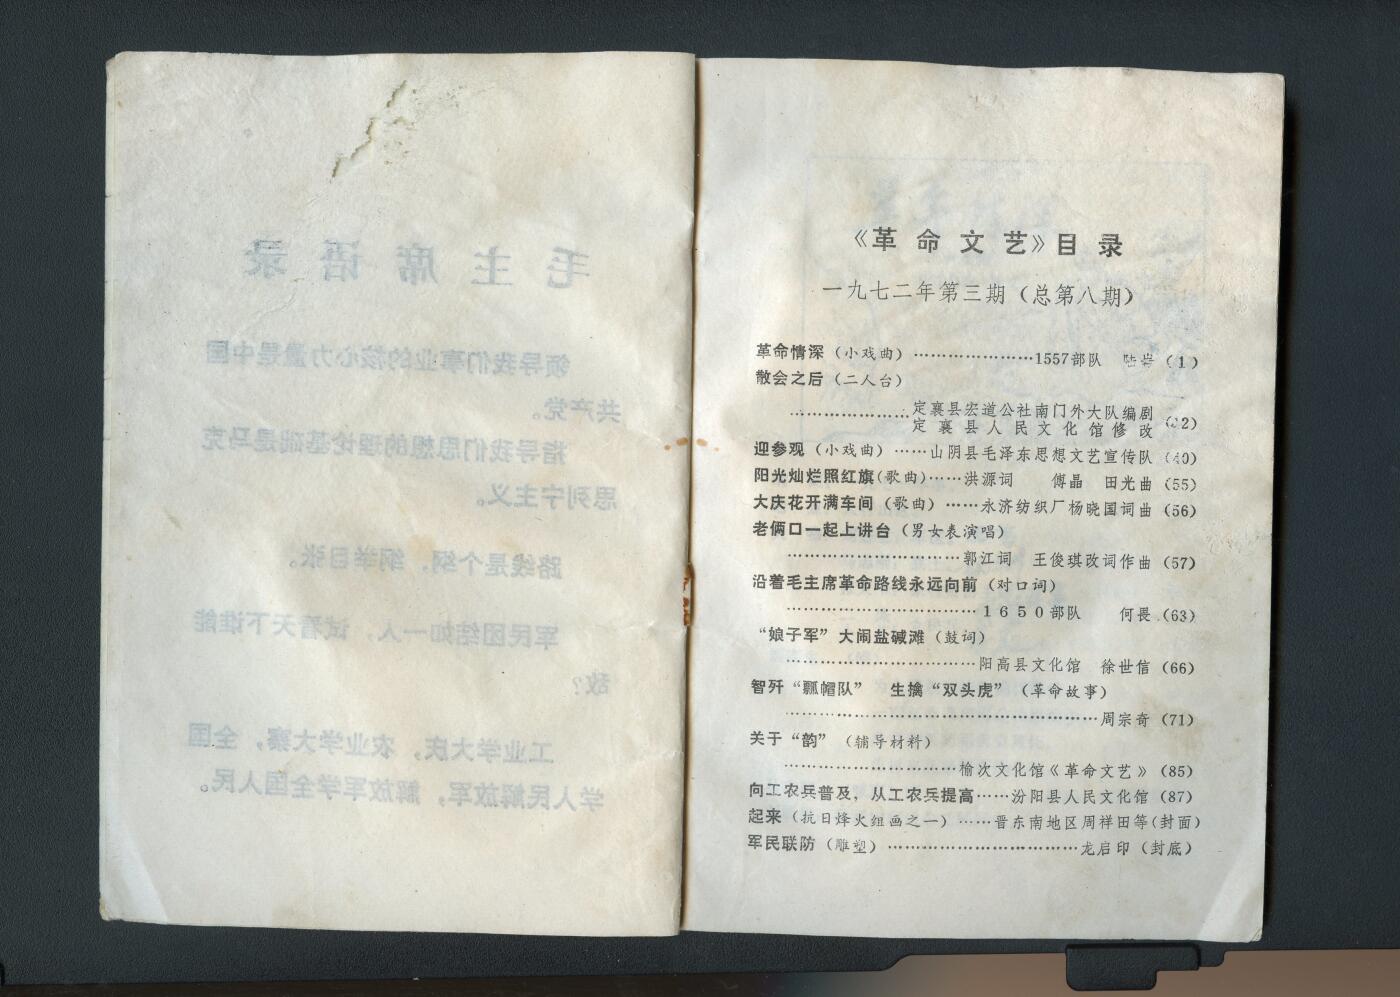 毛主席语录
领导我们事业的核心力量是中国
共产党。
指导我们思想的理论基础是马克
思列宁主义。
路线是个纲，纲举目张。
军民团结如一人，试看天下谁能
敌？
工业学大庆，农业学大寨，全国
学人民解放军，解放军学全国人民。
《革命文艺》目录
一九七二年第三期（总第八期）
革命情深（小戏曲）…………………1557部队 陆岩（1）
散会之后（二人台）
…………………定襄县宏道公社南门外大队编剧
定襄县人民文化馆修改
迎参观（小戏曲）……山阴县毛泽东思想文艺宣传队（40）
阳光灿烂照红旗（歌曲）……洪源词 傅晶 田光曲（55）
大庆花开满车间（歌曲）……永济纺织厂杨晓国词曲（56）
老俩口一起上讲台（男女表演唱）
…………………………郭江词 王俊琪改词作曲（57）
沿着毛主席革命路线永远向前（对口词）
……………………………1650部队 何畏（63）
“娘子军”大闹盐碱滩（鼓词）
……………………………阳高县文化馆 徐世信（66）
智歼“瓢帽队” 生擒“双头虎”（革命故事）
………………………………………………周宗奇（71）
关于“韵”（辅导材料）
…………………………榆次文化馆《革命文艺》（85）
向工农兵普及，从工农兵提高……汾阳县人民文化馆（87）
起来（抗日烽火组画之一）……晋东南地区周祥田等（封面）
军民联防（雕塑）……………………………龙启印（封底）